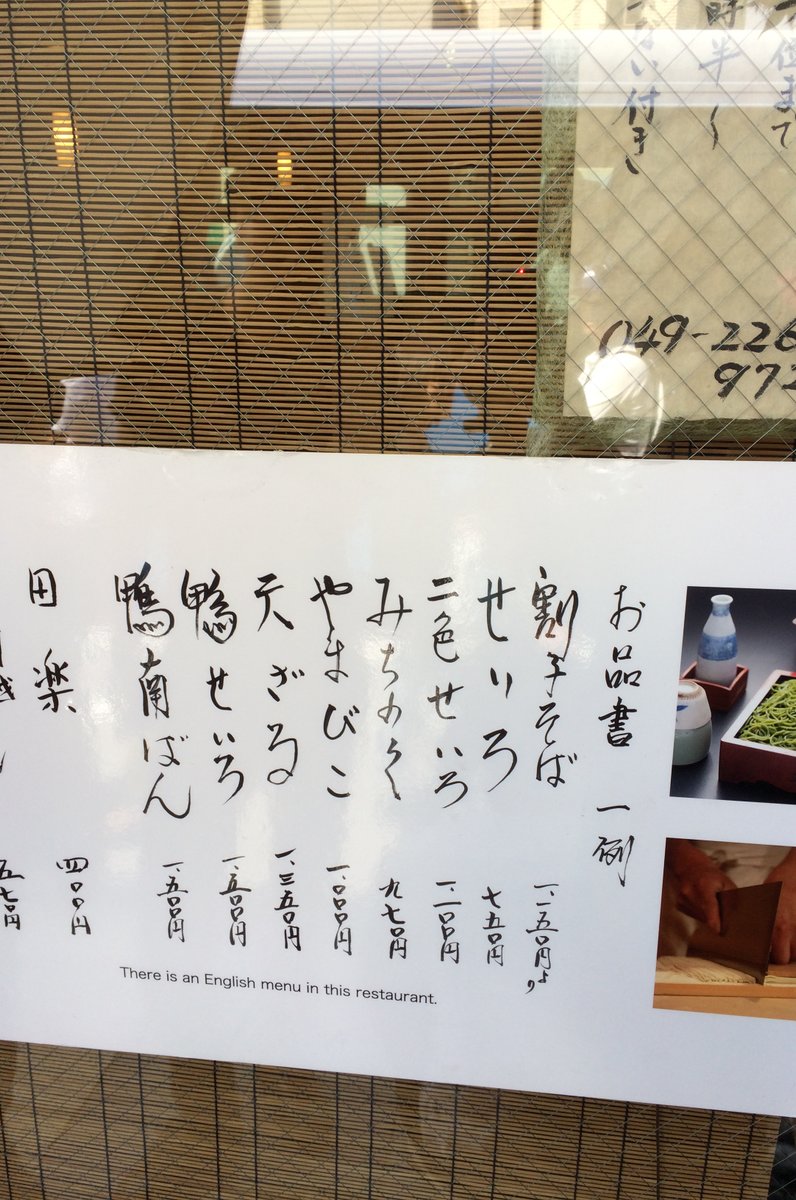 位まで
時半〜
付き
049-226
972
お品書 一例
割子そば 一、一五〇円より
せいろ 七五〇円
二色せいろ 一、一〇〇円
みちのく 九七〇円
やまびこ 一、〇〇〇円
天ざる 一、三五〇円
鴨せいろ 一、五〇〇円
鴨南ばん 一、五〇〇円
田楽 四〇〇円
五七〇円
There is an English menu in this restaurant.